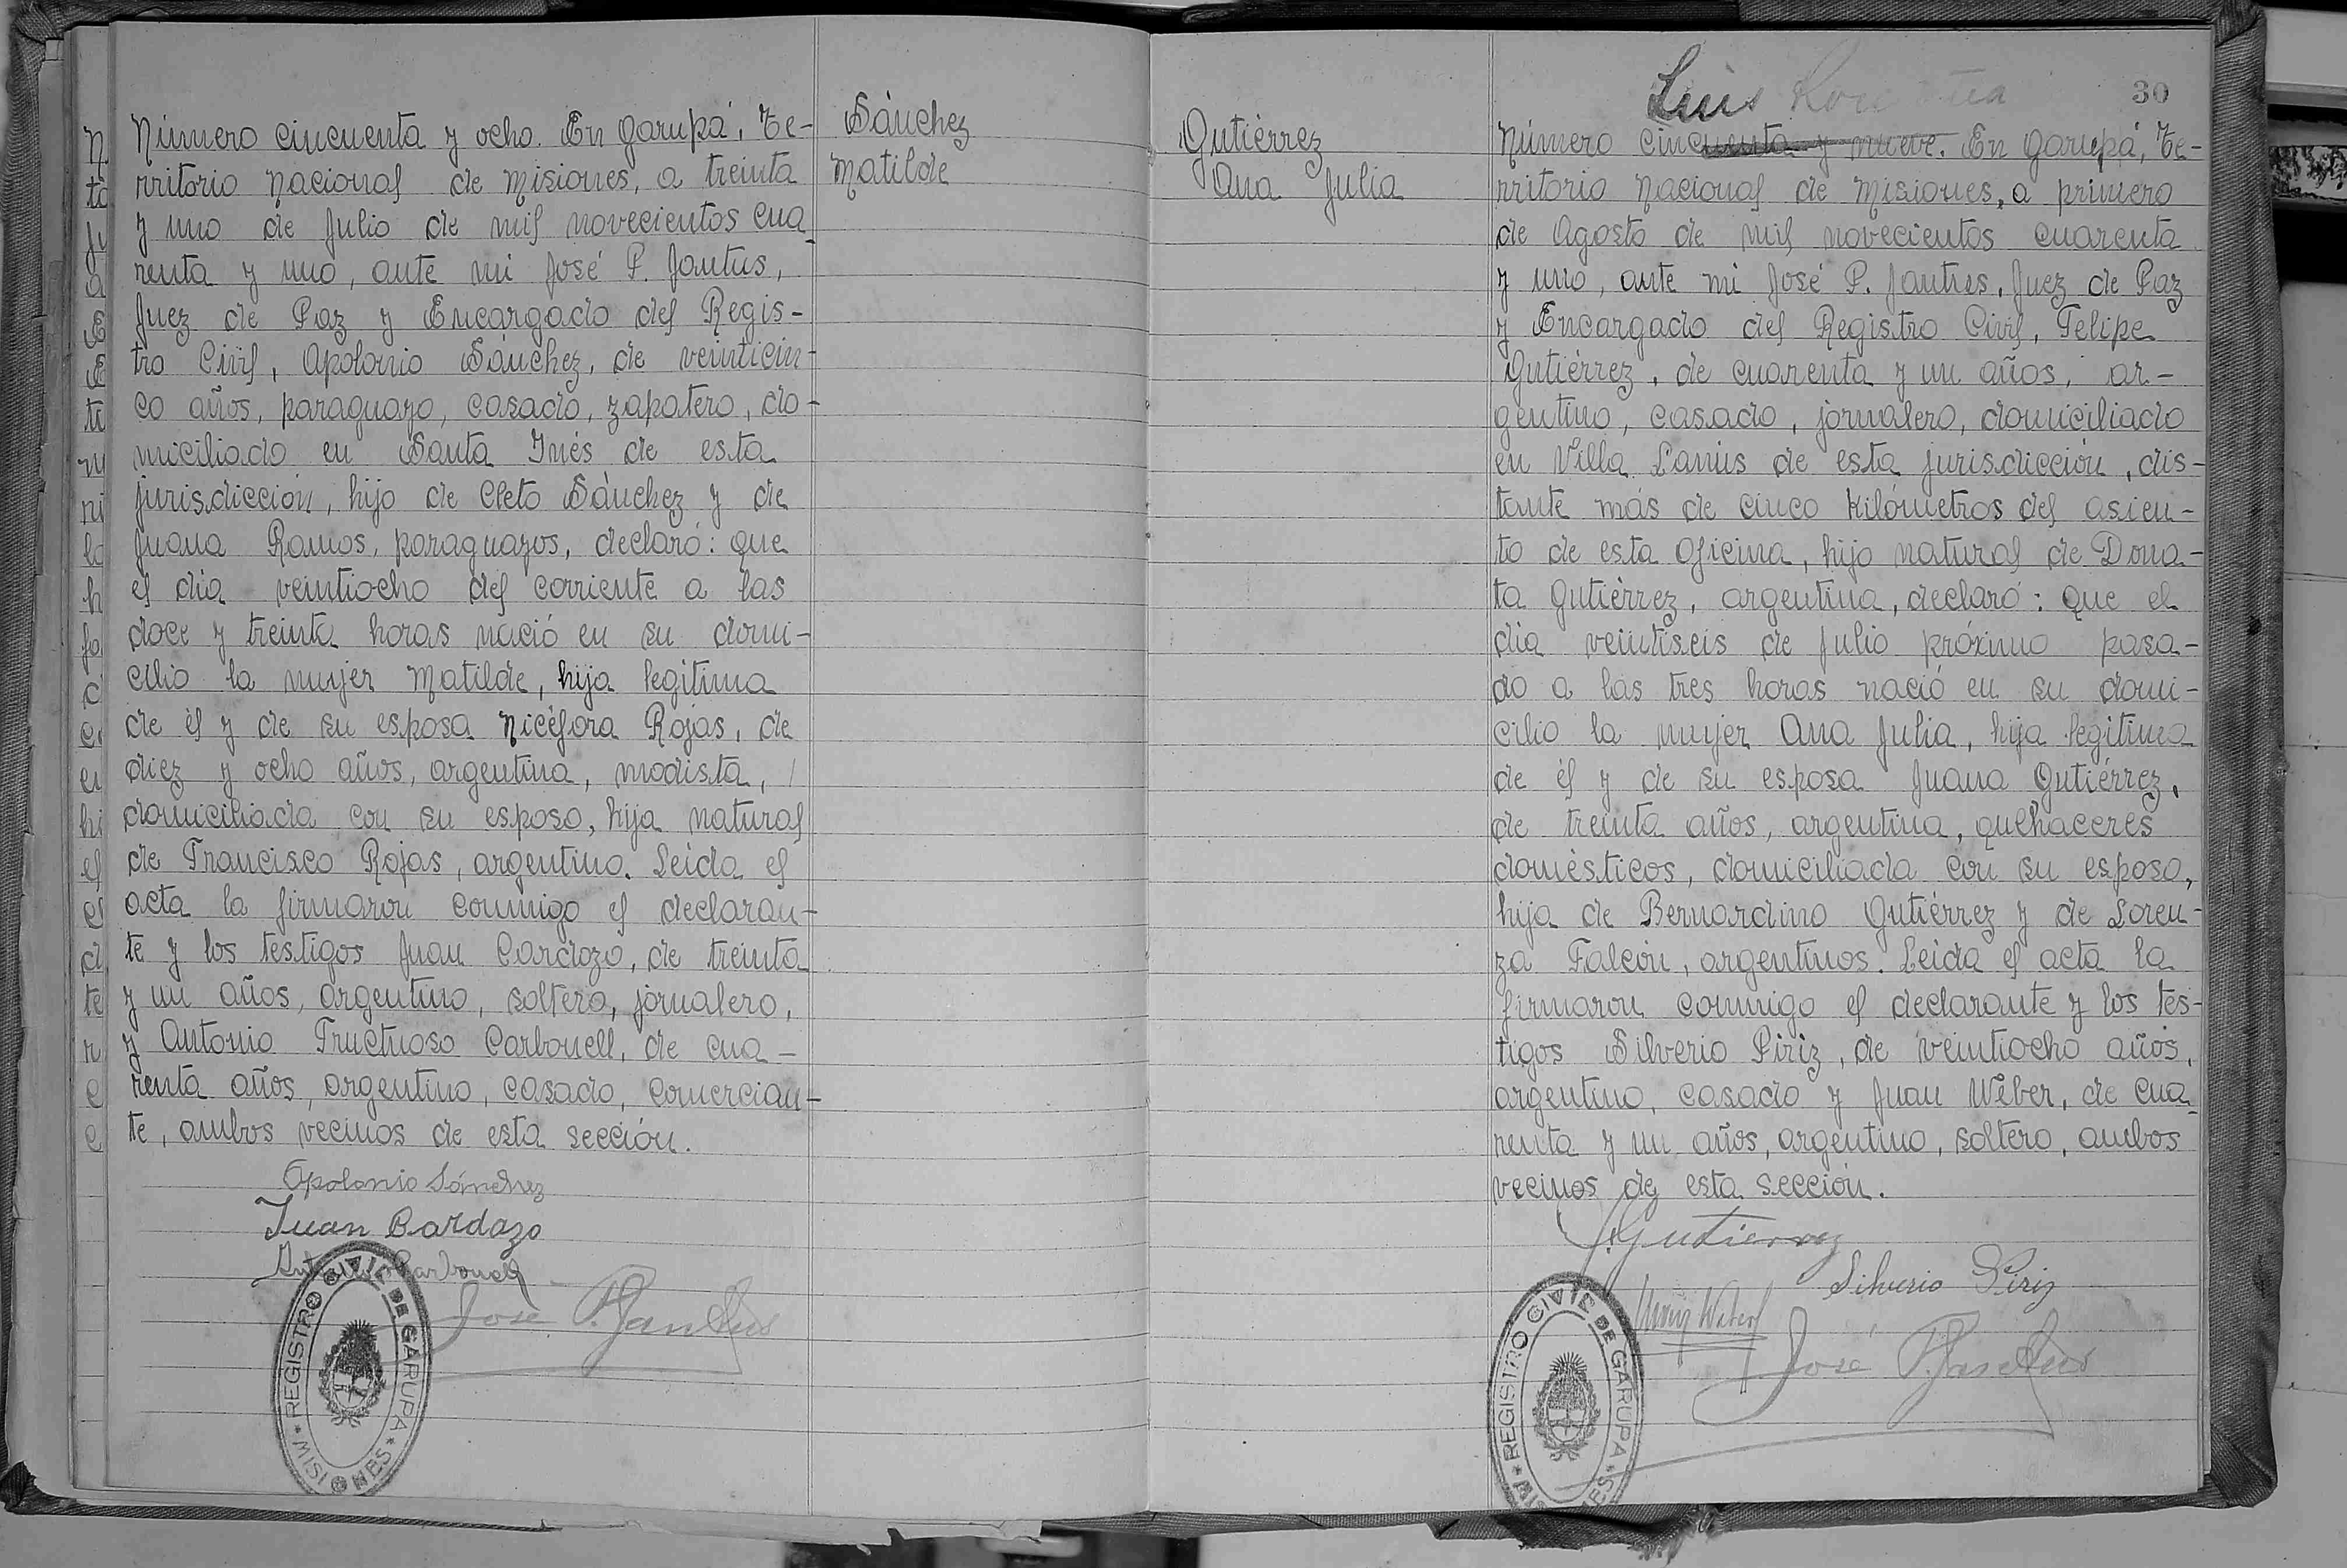 Número cincuenta y ocho. En Garupá, Te-
rritorio Nacional de Misiones, a treinta
y uno de Julio de mil novecientos cua-
renta y uno, ante mi José P. Jantus,
Juez de Paz y Encargado del Regis-
tro Civil, Apolonio Sánchez, de veinticin-
co años, paraguayo, casado, zapatero, do-
miciliado en Santa Inés de esta
jurisdicción, hijo de Cleto Sánchez y de
Juana Ramos, paraguayos, declaró: que
el dia veintiocho del corriente a las
doce y treinta horas nació en su domi-
cilio la mujer Matilde, hija legitima
de él y de su esposa Nicéfora Rojas, de
diez y ocho años, argentina, modista,
domiciliada con su esposo, hija natural
de Francisco Rojas, argentino. Leida el
acta la firmaron conmigo el declaran-
te y los testigos Juan Cardozo, de treinta
y un años, argentino, soltero, jornalero,
y Antonio Fructuoso Carbonell, de cua-
renta años, argentino, casado, comercian-
te, ambos vecinos de esta sección.
Apolonio Sánchez
Juan Cardozo
Carbonell
José P. Jantus
REGISTRO CIVIL DE GARUPA
* MISIONES *
Sánchez
Matilde
Gutiérrez
Ana Julia
Luis
30
Número cincuenta y nueve. En Garupá, Te-
rritorio Nacional de Misiones, a primero
de Agosto de mil novecientos cuarenta
y uno, ante mi José P. Jantus, Juez de Paz
y Encargado del Registro Civil, Felipe
Gutiérrez, de cuarenta y un años, ar-
gentino, casado, jornalero, domiciliado
en Villa Lanús de esta jurisdicción, dis-
tante más de cinco kilómetros del asien-
to de esta Oficina, hijo natural de Dona-
ta Gutiérrez, argentina, declaró: que el
dia veintiseis de Julio próximo pasa-
do a las tres horas nació en su domi-
cilio la mujer Ana Julia, hija legitima
de él y de su esposa Juana Gutiérrez,
de treinta años, argentina, quehaceres
domésticos, domiciliada con su esposo,
hija de Bernardino Gutiérrez y de Loren-
za Falcón, argentinos. Leida el acta la
firmaron conmigo el declarante y los tes-
tigos Silverio Piriz, de veintiocho años,
argentino, casado y Juan Wéber, de cua-
renta y un años, argentino, soltero, ambos
vecinos de esta sección.
Gutierrez
Silverio Piriz
José P. Jantus
REGISTRO CIVIL DE GARUPA